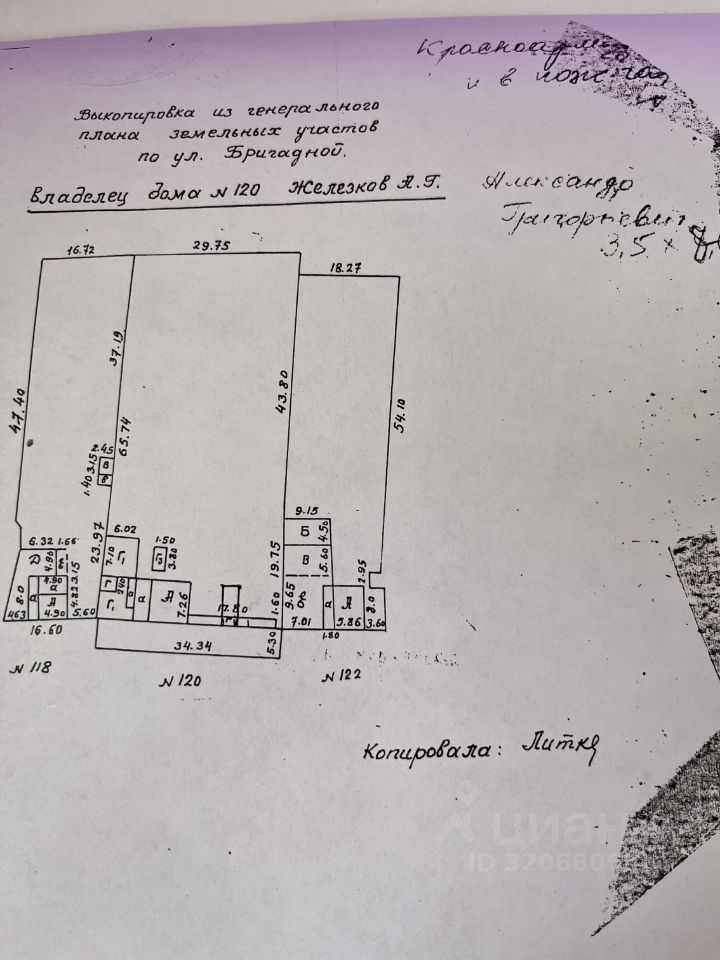 Красноарм
и в
Выкопировка из генерального
плана земельных участов
по ул. Бригадной.
Владелец дома № 120 Железков А.Г.
Александр
Григорьевич
3,5 ×
16.72
29.75
18.27
47.40
37.19
65.74
43.80
54.10
2.45
3.15
1.40
В
6.32
1.66
23.97
6.02
7.10
Г
1.50
3.80
9.15
Б
4.50
В
5.60
19.75
2.95
Д
4.90
3.15
8.0
а
4.90
а
А
4.82
4.63
4.90
5.60
Г
Г
2.40
а
а
А
7.26
17.80
Г
1.60
5.30
9.65
7.01
а
А
5.86
8.0
3.60
1.80
16.60
34.34
№ 118
№ 120
№ 122
Копировала: Литке
циан
ID 3206806